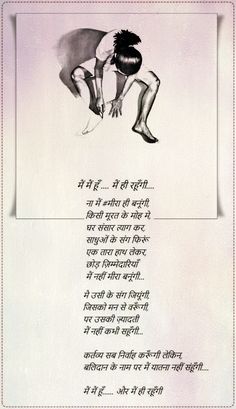 में में हूँ .... में ही रहूँगी....
ना में #मीरा ही बनूंगी,
किसी मूरत के मोह मे,
घर संसार त्याग कर,
साधुओं के संग फिरूं
एक तारा हाथ लेकर,
छोड़ ज़िम्मेदारियाँ
में नहीं मीरा बनूंगी...
मे उसी के संग जियूंगी,
जिसको मन से वरूँगी,
पर उसकी ज़्यादती
में नहीं कभी सहूँगी...
कर्तव्य सब निर्वाह करूँगी लेकिन,
बलिदान के नाम पर में यातना नहीं सहूंगी....
में में हूँ...... ओर में ही रहूँगी